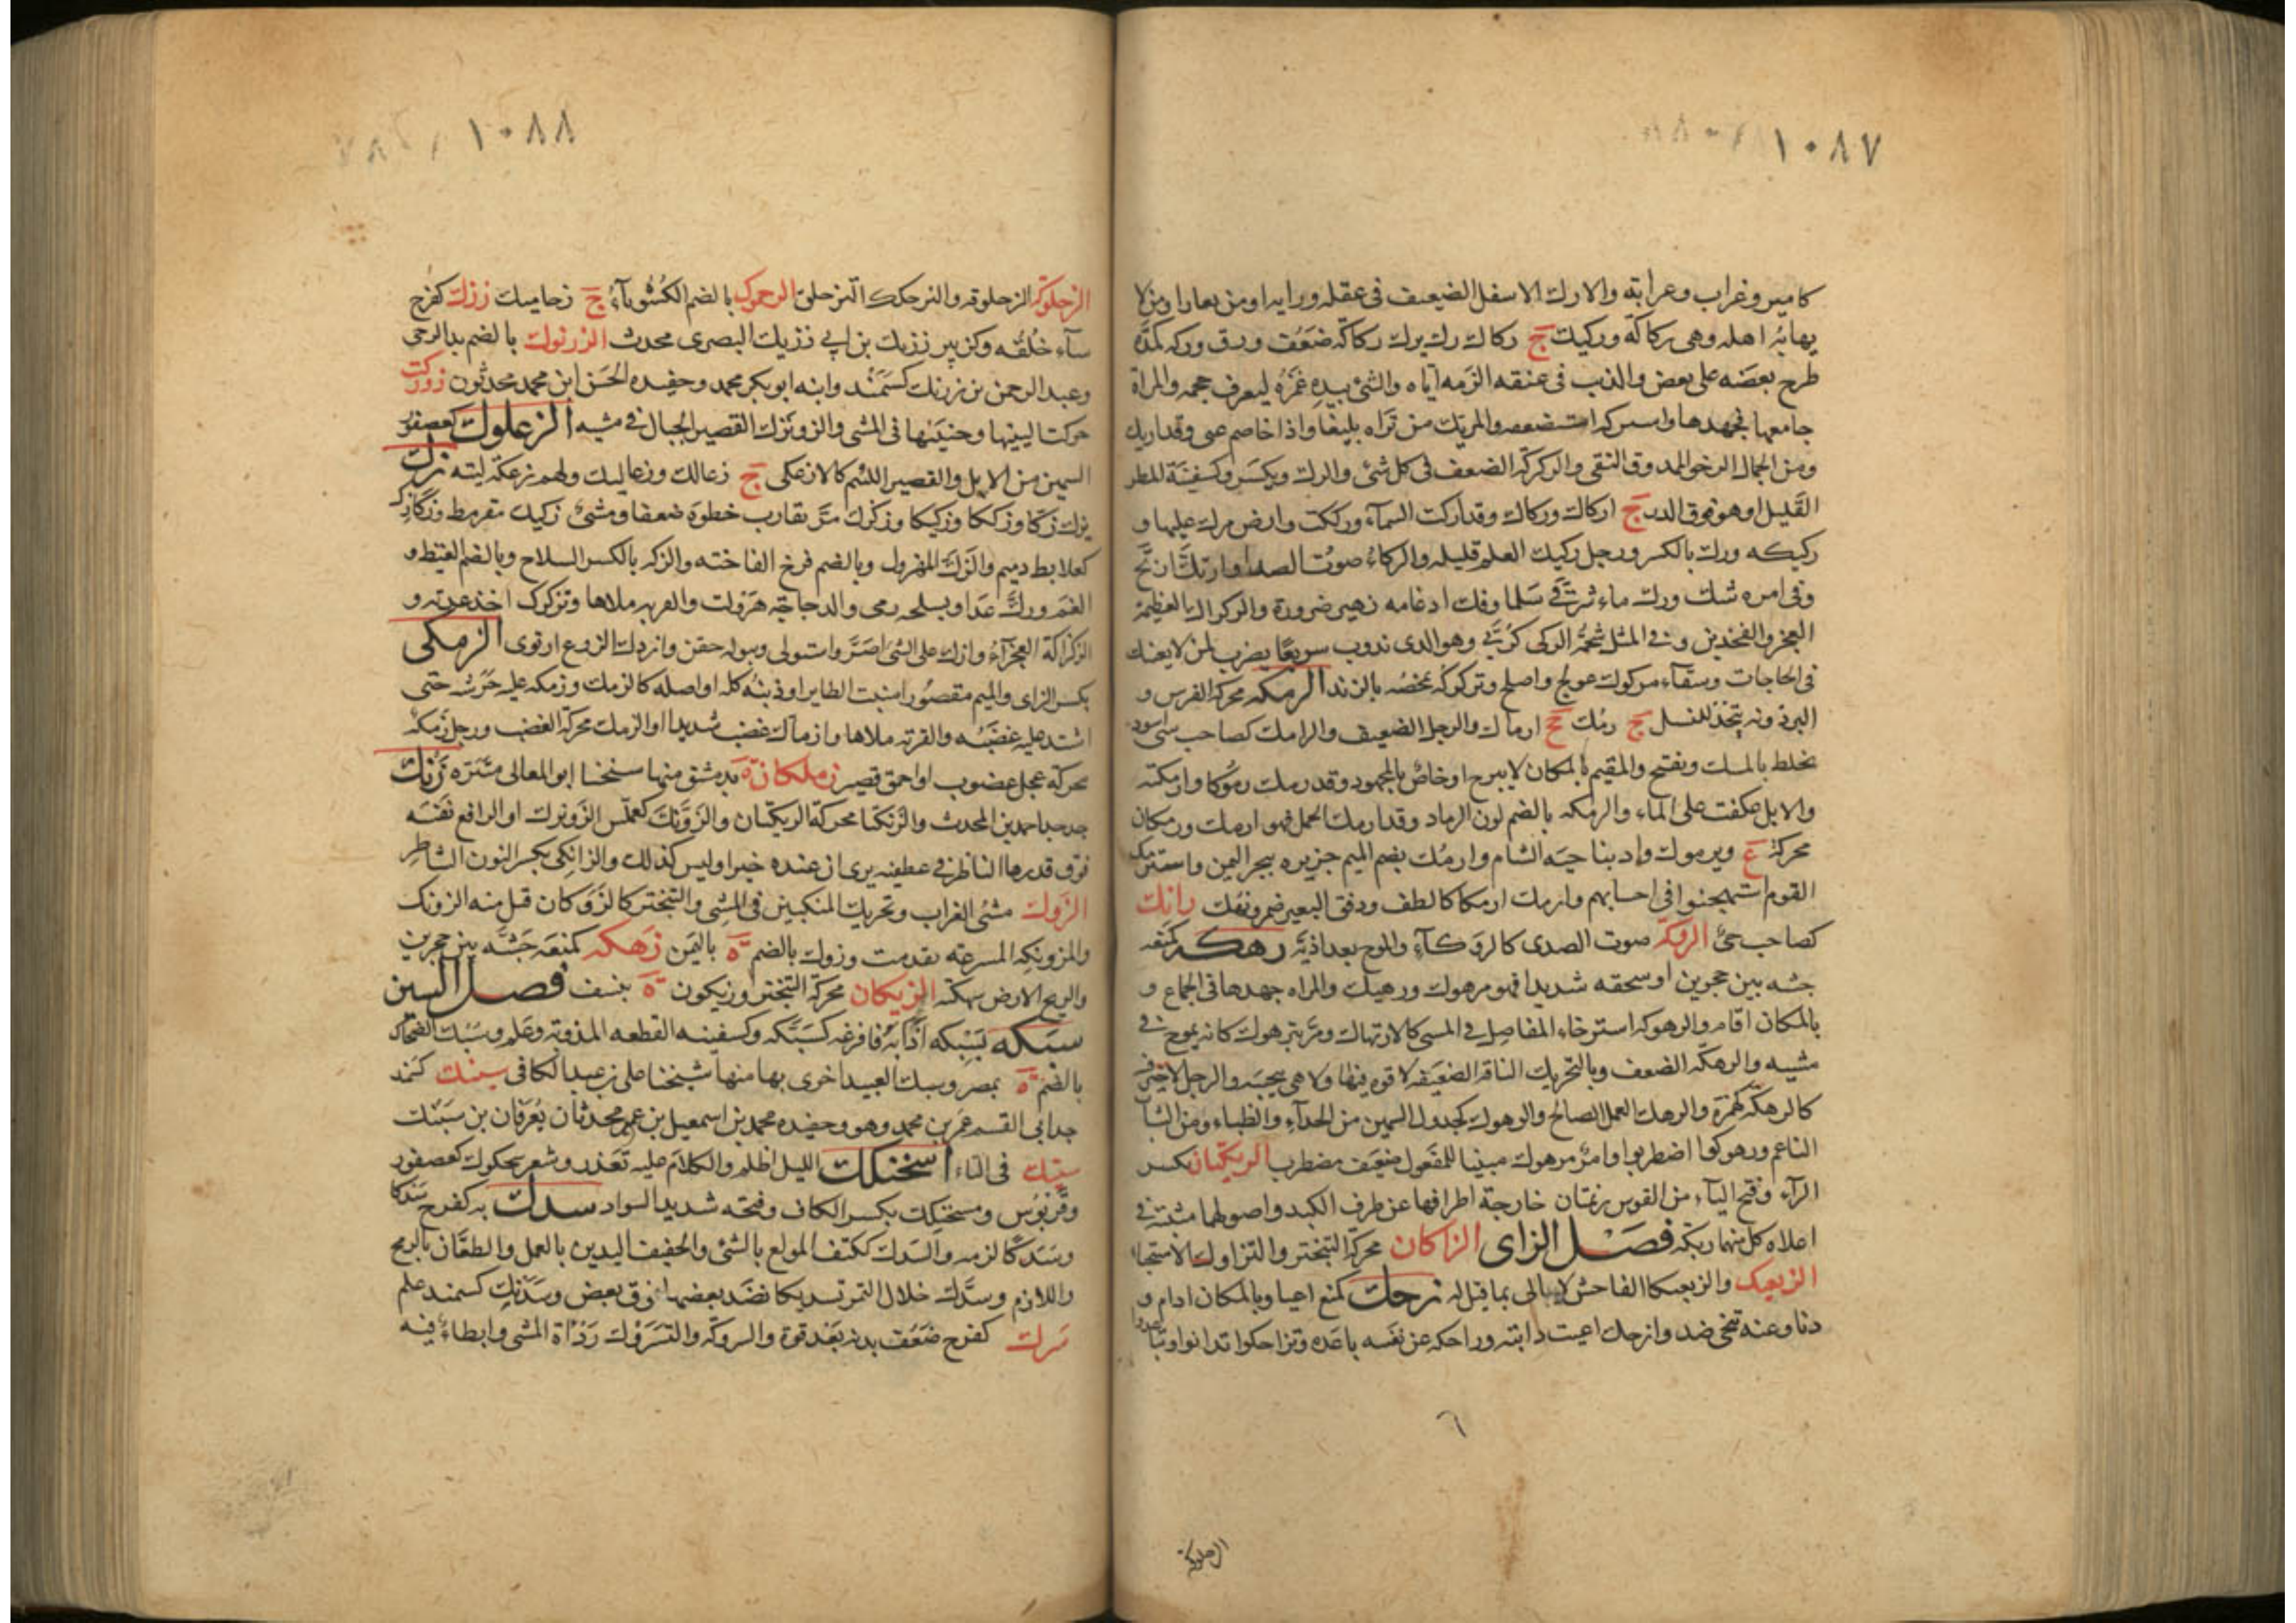 ١٠٨٧
كامير وغراب وغرابة والارك الاسفل الضعيف فى عقله ورايه او من يعار او من لا
يهابه اهله وهى ركاكة وركيك ج ركاك رك يرك ركاكة ضعف ورق وركه كمده
طرح بعضه على بعض والذنب فى عنقه الزمه اياه والشئ بيده غمزه ليعرف حجمه والمراة
جامعها فجهدها واستركه استضعفه والمرتك من تراه بليغا واذا خاصم عى وقد ارتك
ومن الجمال الرخو الممذوق النقى والركركة الضعف فى كل شئ والرك ويكسر وكسفينة المطر
القليل او هو فوق الدث ج اركاك وركاك وقد اركت السماء ورككت وارض مرك عليها و
ركيكه ورك بالكسر ورجل ركيك العلم قليله والركاء صوت الصدا وارتك ارتج
وفى امره شك ورك ماء شرقى سلما وفك ادغامه زهير ضرورة والركراكة العظيمة
العجز والفخذين وفى المثل شحمة الركى كربى وهو الذى يذوب سريعا يضرب لمن لا يعينك
فى الحاجات وسقاء مركوك عولج واصلح وتركركه تمخضه بالزبد الرمكه محركة الفرس و
البرذونه تتخذ للنسل ج رمك جج ارماك والرجل الضعيف والرامك كصاحب شئ اسود
يخلط بالمسك ويفتح والمقيم بالمكان لا يبرح او خاص بالمجهود وقد رمك رموكا وارمكته
والابل عكفت على الماء والرمكه بالضم لون الرماد وقد ارمك الجمل فهو ارمك ورمكان
محركة ع ويرموك واد بناحيه الشام وارمك بضم الميم جزيره ببحر اليمن واسترمك
القوم استهجنوا فى احسابهم وارمك ارمكاكا لطف ودق البعير ضمر ونهك رانك
كصاحب حى الروكة صوت الصدى كالروكاء والموج بغداذية رهكه كمنعه
جشه بين حجرين او سحقه شديدا فهو مرهوك ورهيك والمراه جهدها فى الجماع و
بالمكان اقام والرهوكه استرخاء المفاصل فى المشى كالارتهاك ومر يترهوك كانه يموج فى
مشيه والرهكه الضعف وبالتحريك الناقه الضعيفه لا قوه فيها ولا هى بنجيبه والرجل لا خير فيه
كالرهكة كهمزة والرهك العمل الصالح والرهوك كجدول السمين من الجداء والظباء ومن الشباب
الناعم ورهوكوا اضطربوا وامر مرهوك مبنيا للمفعول ضعيف مضطرب الريكتان بكسر
الراء وفتح الياء من القوس زنمتان خارجة اطرافها عن طرف الكبد واصولهما مثبتة فى
اعلاه كل منهما ريكة فصل الزاى الزاكان محركة التبختر والتزاوك الاستحيا
الزبعبك والزبعبكا الفاحش لا يبالى بما قيل له زحك كمنع اعيا وبالمكان اقام و
دنا وعنه تنحى ضد وازحك اعيت دابته وزاحكه عن نفسه باعده وتزاحكوا تدانوا وتباعدوا
٦
الزحلوكة
١٠٨٨
الزحلوكة الزحلوقه والتزحلك التزحلق الزحموك بالضم الكشوثاء ج زحاميك زرك كفرح
ساء خلقه وكزبير زريك بن ابى زريك البصرى محدث الزرنوك بالضم يد الرحى
وعبد الرحمن بن زرنك كسمند وابنه ابو بكر محمد وحفيده الحسن ابن محمد محدثون زوزكت
حركت اليتيها وجنبيها فى المشى والزونزك القصير الجبال فى مشيه الزعلوك كعصفور
السمين من الابل والقصير اللئيم كالازعكى ج زعالك وزعاليك ولهم زعكة لبثه زك
يزك زكا وزككا وزكيكا وزكزك مر يقارب خطوه ضعفا ومشى زكيك مقرمط وزكازك
كعلابط دميم والزك المهزول وبالضم فرخ الفاخته والزكه بالكسر السلاح وبالضم الغيظ و
الغم وزك عدا وبسلحه رمى والدجاجة هرولت والقربه ملاها وتزكزك اخذ عدته و
الزكزاكة العجزاء وازك على الشئ اصر واستولى وببوله حقن وازدك الزرع ارتوى الزمكى
بكسر الزاى والميم مقصورا منبت ذنب الطاير او ذنبه كله او اصله كالزمك وزمكه عليه حرشه حتى
اشتد عليه غضبه والقربه ملاها وازماك غضب شديدا او الزمك محركة الغضب ورجل زمكه
محركة عجل غضوب او احمق قصير زملكان ة بدمشق منها شيخنا ابو المعالى متنزه زنك
جد جد احمد بن المحدث والزنكتا محركة الريكتان والزونك كعملس الزونزك او الرافع نفسه
فوق قدرها الناظر فى عطفيه يرى ان عنده خيرا وليس كذلك والزانكى بكسر النون الشاطر
الزوك مشى الغراب وتحريك المنكبين فى المشى والتبختر كالزوكان قيل منه الزونك
والمزونكه المسرعه تقدمت وزوك بالضم ة باليمن زهكه كمنعه جشه بين حجرين
والريح الارض سهكته الزيكان محركة التبختر وزيكون ة بنسف فصل السين
سبكه يسبكه اذابه فافرغه كسبكه وكسفينه القطعه المذوبة وعلم وسبك الضحاك
بالضم ة بمصر وسبك العبيد اخرى بها منها شيخنا على بن عبد الكافى سبنك كسمند
جد ابى القسم عمر بن محمد وهو وحفيده محمد بن اسمعيل بن عمر محدثان يعرفان بن سبنك
سبنك فى التاء اسحنكك الليل اظلم والكلام عليه تعذر وشعر سحكوك كعصفور
وقربوس ومسحنكك بكسر الكاف وفتحه شديد السواد سدك به كفرح سدكا
وسدكا لزمه والسدك ككتف المولع بالشئ والخفيف اليدين بالعمل والطعان بالرمح
واللازم وسدك خلال التمر تسديكا نضد بعضها فوق بعض وسدنك كسمند علم
سرك كفرح ضعف بدنه بعد قوة والسروكة والتسروك رداة المشى وابطاء فيه